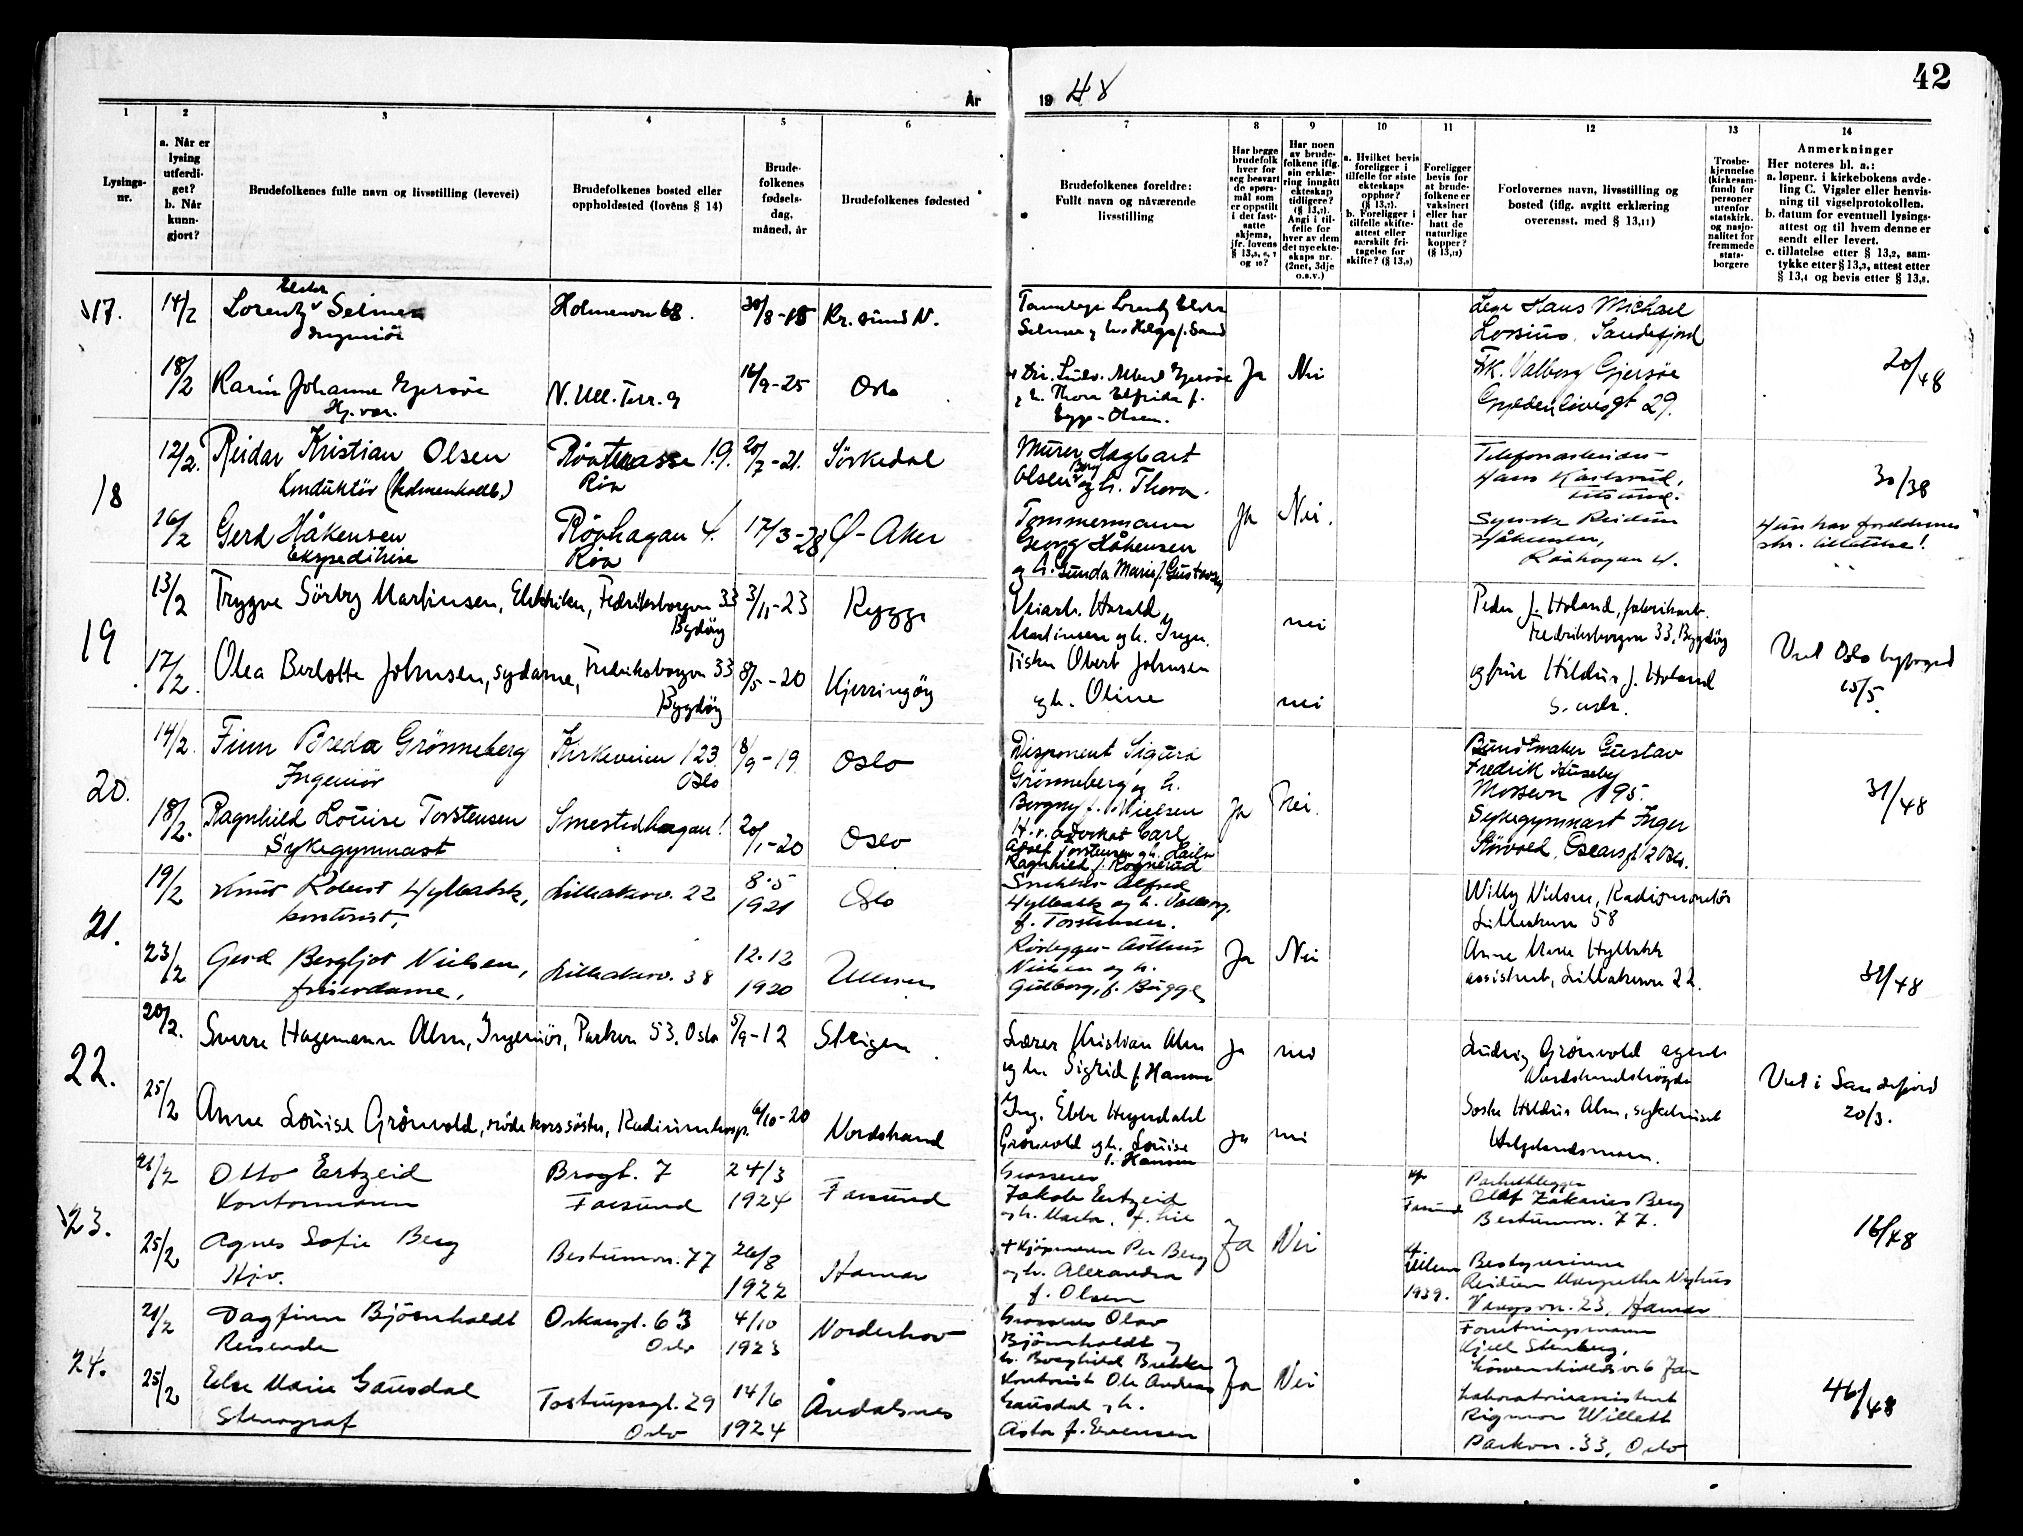 42
År
19 48
1
2
3
4
5
6
7
8
9
10
11
12
13
14
Lysings-
nr.
a. Når er
lysing
utferdi-
get?
b. Når
kunn-
gjort?
Brudefolkenes fulle navn og livsstilling (levevei)
Brudefolkenes bosted eller
oppholdested (lovens § 14)
Brude-
folkenes
fødsels-
dag,
måned, år
Brudefolkenes fødested
Brudefolkenes foreldre:
Fullt navn og nåværende
livsstilling
Har begge
brudefolk
hver for
seg besvart
de spørs-
mål som
er oppstilt
i det fast-
satte
skjema,
jfr. lovens
§ 13,5, 6, 7
og 10?
Har noen
av brude-
folkene iflg.
sin erklæ-
ring inngått
ekteskap
tidligere?
(§ 13,7).
Angi i til-
felle for
hver av dem
det nye ekte-
skaps nr.
(2net, 3dje
o.s.v.)
a. Hvilket bevis
foreligger i
tilfelle for siste
ekteskaps
opphør?
(§ 13,7).
b. Foreligger i
tilfelle skifte-
attest eller
særskilt fri-
tagelse for
skifte? (§ 13,9)
Foreligger
bevis for
at brude-
folkene er
vaksinert
eller har
hatt de
naturlige
kopper?
(§ 13,12)
Forlovernes navn, livsstilling og
bosted (iflg. avgitt erklæring
overensst. med § 13,11)
Trosbe-
kjennelse
(kirkesam-
fund) for
personer
utenfor
statskirk.
og nasjo-
nalitet for
fremmede
stats-
borgere
Anmerkninger
Her noteres bl. a.:
a. løpenr. i kirkebokens avde-
ling C. Vigsler eller henvis-
ning til vigselprotokollen.
b. datum for eventuell lysings-
attest og til hvem denne er
sendt eller levert.
c. tillatelse etter § 13,2, sam-
tykke etter § 13,3, attest etter
§ 13,4 og bevis etter § 13,8.
17.
14/2
Lorentz Selmer
Ingeniör
Holmenvn 68.
Kr. sund N.
Selmer
Hans Michael
Sandefjord
18/2
Karin Johanne Gjersøe
N. Ull. Terr. 9
16/9-25
Oslo
Ja
Nei
Frk. Valborg Gjersöe
Gyldenlövesgt 29.
20/48
18
12/2.
Reidar Kristian Olsen
Konduktör (Holmenkollb.)
Röaterrasse 19.
Röa
20/7-21.
Sörkedal
Murer Hagbart
Olsen og h. Thora.
Hans Karlsrud,
30/38
16/2
Gerd Håkensen
Ekspeditrise
Röahagan 4.
Röa
17/3-28
Ø-Aker
Tømmermann
Georg Håkensen
og h. Gunda Marie f. Gustavsen
Ja
Nei.
Reidun
Håkensen,
Röahagan 4.
Hun har foreldrenes
skr. tillatelse!
19
13/2
Trygve Sörby Martinsen, Elektriker, Fredriksborgvn 33
Bygdöy
3/11-23
Rygge
Harald
Martinsen og h. Inga.
nei
Peder J. Holand, fabrikarb.
Fredriksborgvn 33, Bygdöy
17/2.
Olea Berlotte Johnsen, sydame, Fredriksborgvn 33
Bygdöy
8/5-20
Kjerringöy
Fisker Obert Johnsen
og h. Oline
nei
og frue Hildur J. Holand
s. adr.
Viet Oslo byfoged
15/5.
20.
14/2.
Finn Breda Grönneberg
Ingeniör
Kirkeveien 123.
Oslo
8/9-19
Oslo
Disponent Sigurd
Grönneberg og h.
Borgny f. Nielsen
Buntmaker Gustav
Fredrik Huseby
Mossevn 195.
18/2.
Ragnhild Louise Torstensen
Sykegymnast
Smestadhagan 1
20/1-20
Oslo
H.r. advokat Carl
Adolf Torstensen og h. Laila
Ragnhild f. Rognerud
Ja
Nei.
Sykegymnast Inger
31/48
21.
19/2
Knut Robert Hylbakk,
kontorist,
Lilleakerv. 22
8.5
1921
Oslo
Snekker Alfred
Hylbakk og h. Valborg,
f. Torstensen.
Willy Nielsen, Radiomontör
Lilleakervn 58
23/2
Gerd Bergljot Nielsen,
friserdame,
Lilleakerv. 38
12.12
1920
Ullern
Rørlegger Arthur
Nielsen og h.
Gudborg, f. Bugge
Ja
Nei
Anne Marie Hylbakk
assistent, Lilleakervn 22.
32/48
22.
20/2.
Sverre Hagemann Alm, Ingeniör, Parkvn 53, Oslo
5/9-12
Steigen
Lærer Kristian Alm
og h. Sigrid f. Hansen
ja
nei
Ludvig Grönvold agent
Nordstrandshögda
25/2
Anne Louise Grönvold, rödekorssöster, Radiumhosp.
6/10-20
Nordstrand
Ing. Ebbe Hagerdahl
Grönvold og h. Louise
f. Hansen
ja
nei
Söster Hildur Alm, sykehuset
Viet i Sandefjord
20/3.
23.
21/2
Otto Ertzeid
Kontormann
Brogt. 7
Farsund
24/3
1924
Farsund
Grosserer
Jakob Ertzeid
og h. Marta, f. Lie
Farsund
Parkettlegger
Olaf Zakarias Berg
Bestumvn. 77.
25/2
Agnes Sofie Berg
Hjv.
Bestumvn. 77
26/8
1922
Hamar
+ Kjöpmann Per Berg
og h. Alexandra
f. Olsen
Ja
Nei
Ullern
1939.
Bestyrerinne
Reidun Margrethe Nyhus
Vangsvn. 23, Hamar
16/48
24.
21/2
Dagfinn Björnholdt
Reisende
Oskarsgt. 63
Oslo
4/10
1923
Norderhov
Grosserer Olav
Björnholdt og
h. Borghild Brekke
Forretningsmann
Kjell Stenberg,
25/2
Else Marie Gausdal
Stenograf
Tostrupsgt. 29
Oslo
14/6
1924
Åndalsnes
Kontorist Ole Andreas
Gausdal og h.
Asta f. Evensen
Ja
Nei
Laboratorieassistent
Rigmor Willett
Parkvn. 33, Oslo
46/48